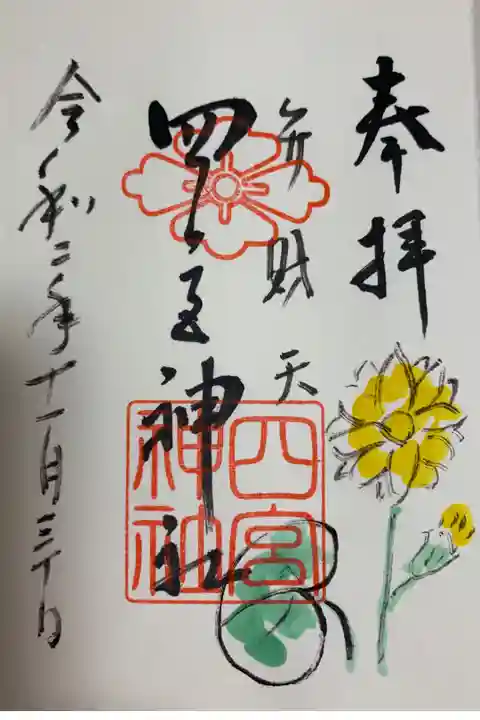 奉拝
弁財天
四宮神社
四宮神社
令和二年十一月三十日